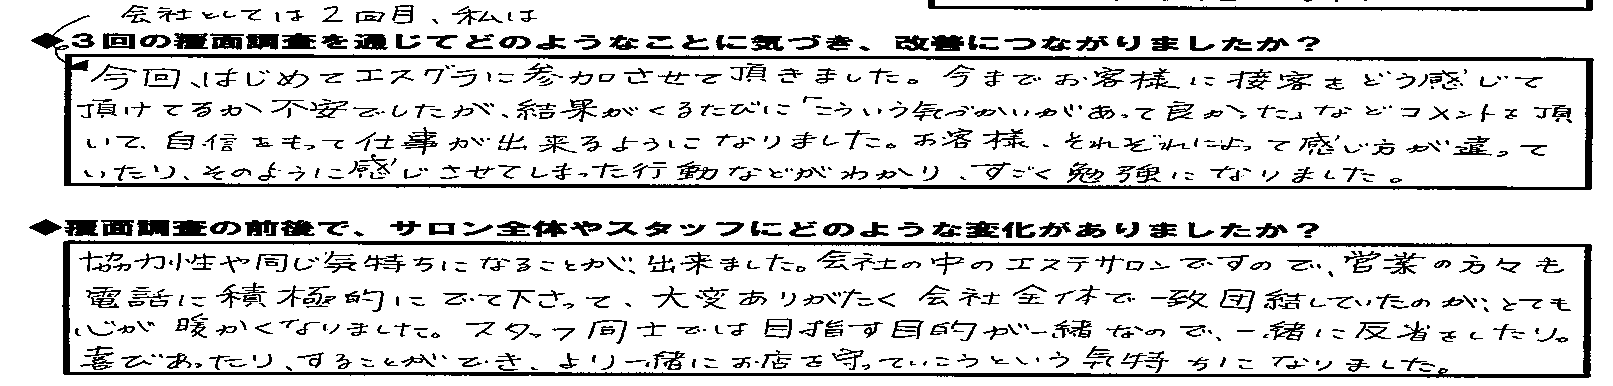 会社としては2回目、私は
◆3回の覆面調査を通じてどのようなことに気づき、改善につながりましたか?
今回、はじめてエスグラに参加させて頂きました。今までお客様に接客をどう感じて
頂けてるか不安でしたが、結果がくるたびに「こういう気づかいがあって良かった」などコメントを頂
いて、自信をもって仕事が出来るようになりました。お客様、それぞれによって感じ方が違って
いたり、そのように感じさせてしまった行動などがわかり、すごく勉強になりました。
◆覆面調査の前後で、サロン全体やスタッフにどのような変化がありましたか?
協力性や同じ気持ちになることが、出来ました。会社の中のエステサロンですので、営業の方々も
電話に積極的にでて下さって、大変ありがたく会社全体で一致団結していたのが、とても
心が暖かくなりました。スタッフ同士では目指す目的が一緒なので、一緒に反省をしたり。
喜びあったり、することができ、より一緒にお店を守っていこうという気持ちになりました。